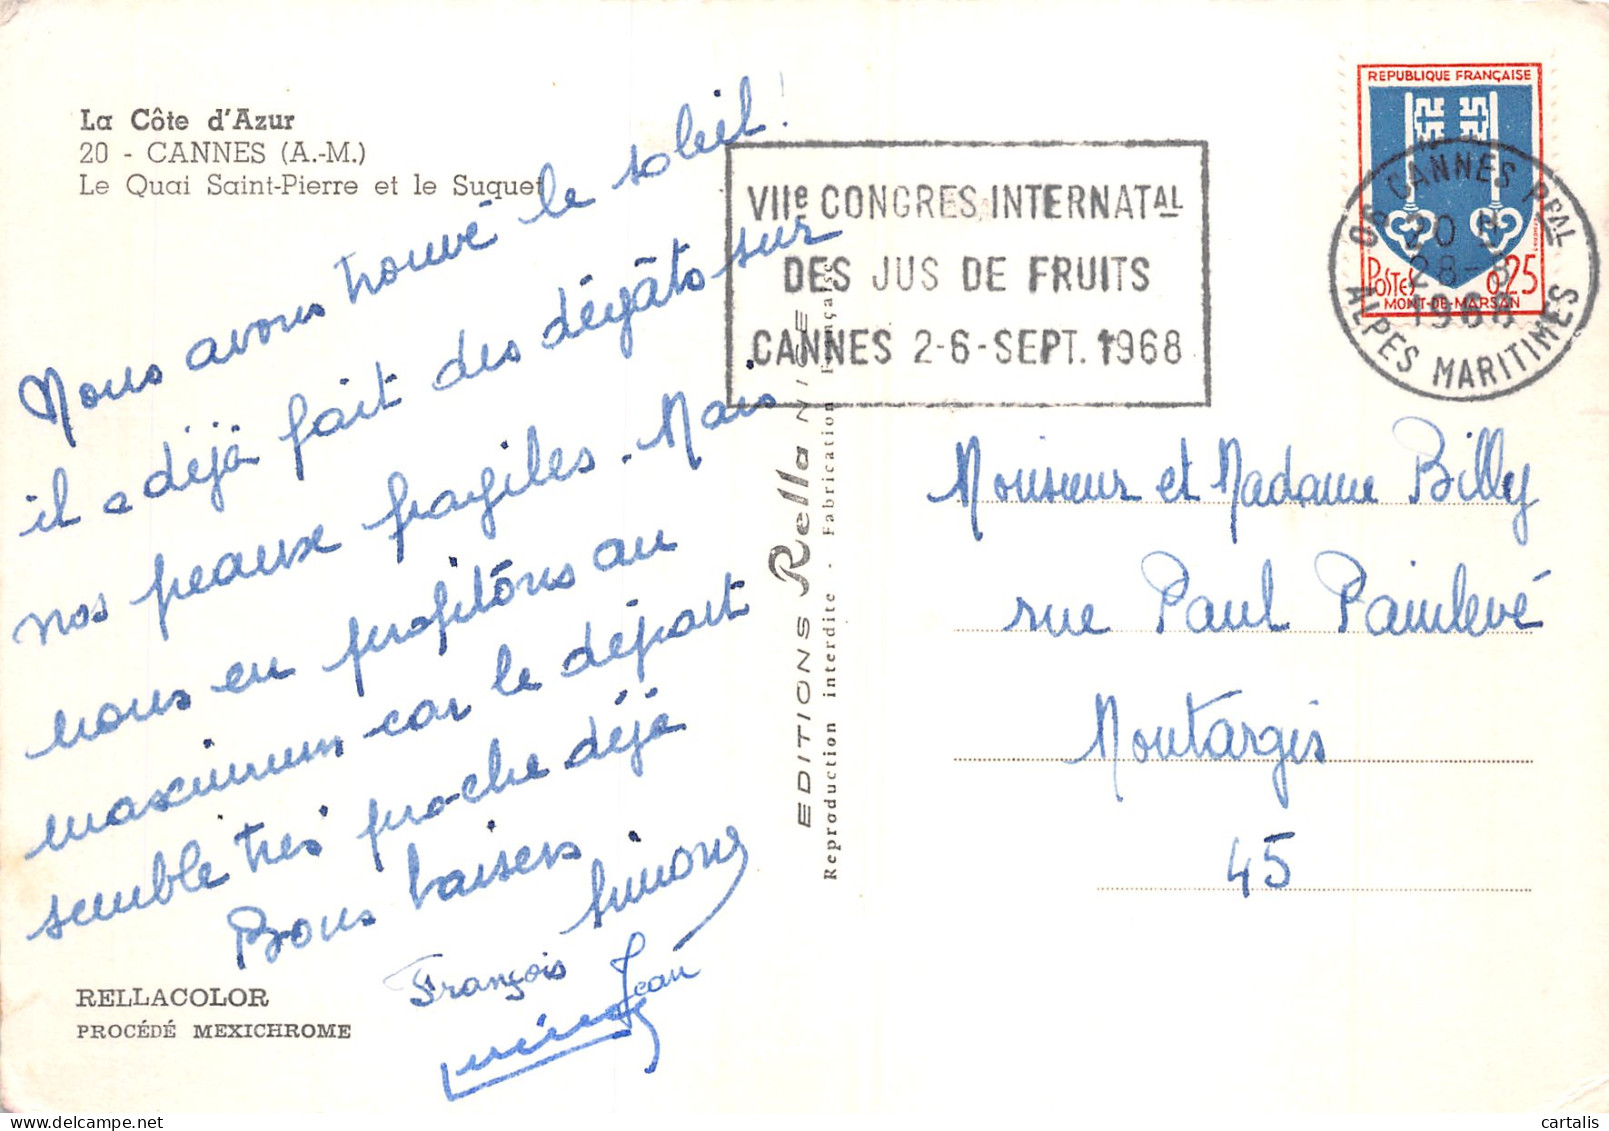 La Côte d'Azur
20 - CANNES (A.-M.)
Le Quai Saint-Pierre et le Suquet
Nous avons trouvé le soleil !
il a déjà fait des dégâts sur
nos peaux fragiles. Mais
nous en profitons au
maximum car le départ
semble très proche déjà
Bons baisers
Simone
François
Jean
RELLACOLOR
PROCÉDÉ MEXICHROME
EDITIONS Rella NICE
Reproduction interdite - Fabrication Française
VIIe CONGRES INTERNATAL
DES JUS DE FRUITS
CANNES 2-6-SEPT. 1968
REPUBLIQUE FRANÇAISE
POSTES 0,25
MONT-DE-MARSAN
06 CANNES PPAL
28-8
1968
ALPES MARITIMES
Monsieur et Madame Billy
rue Paul Painlevé
Montargis
45
cartalis